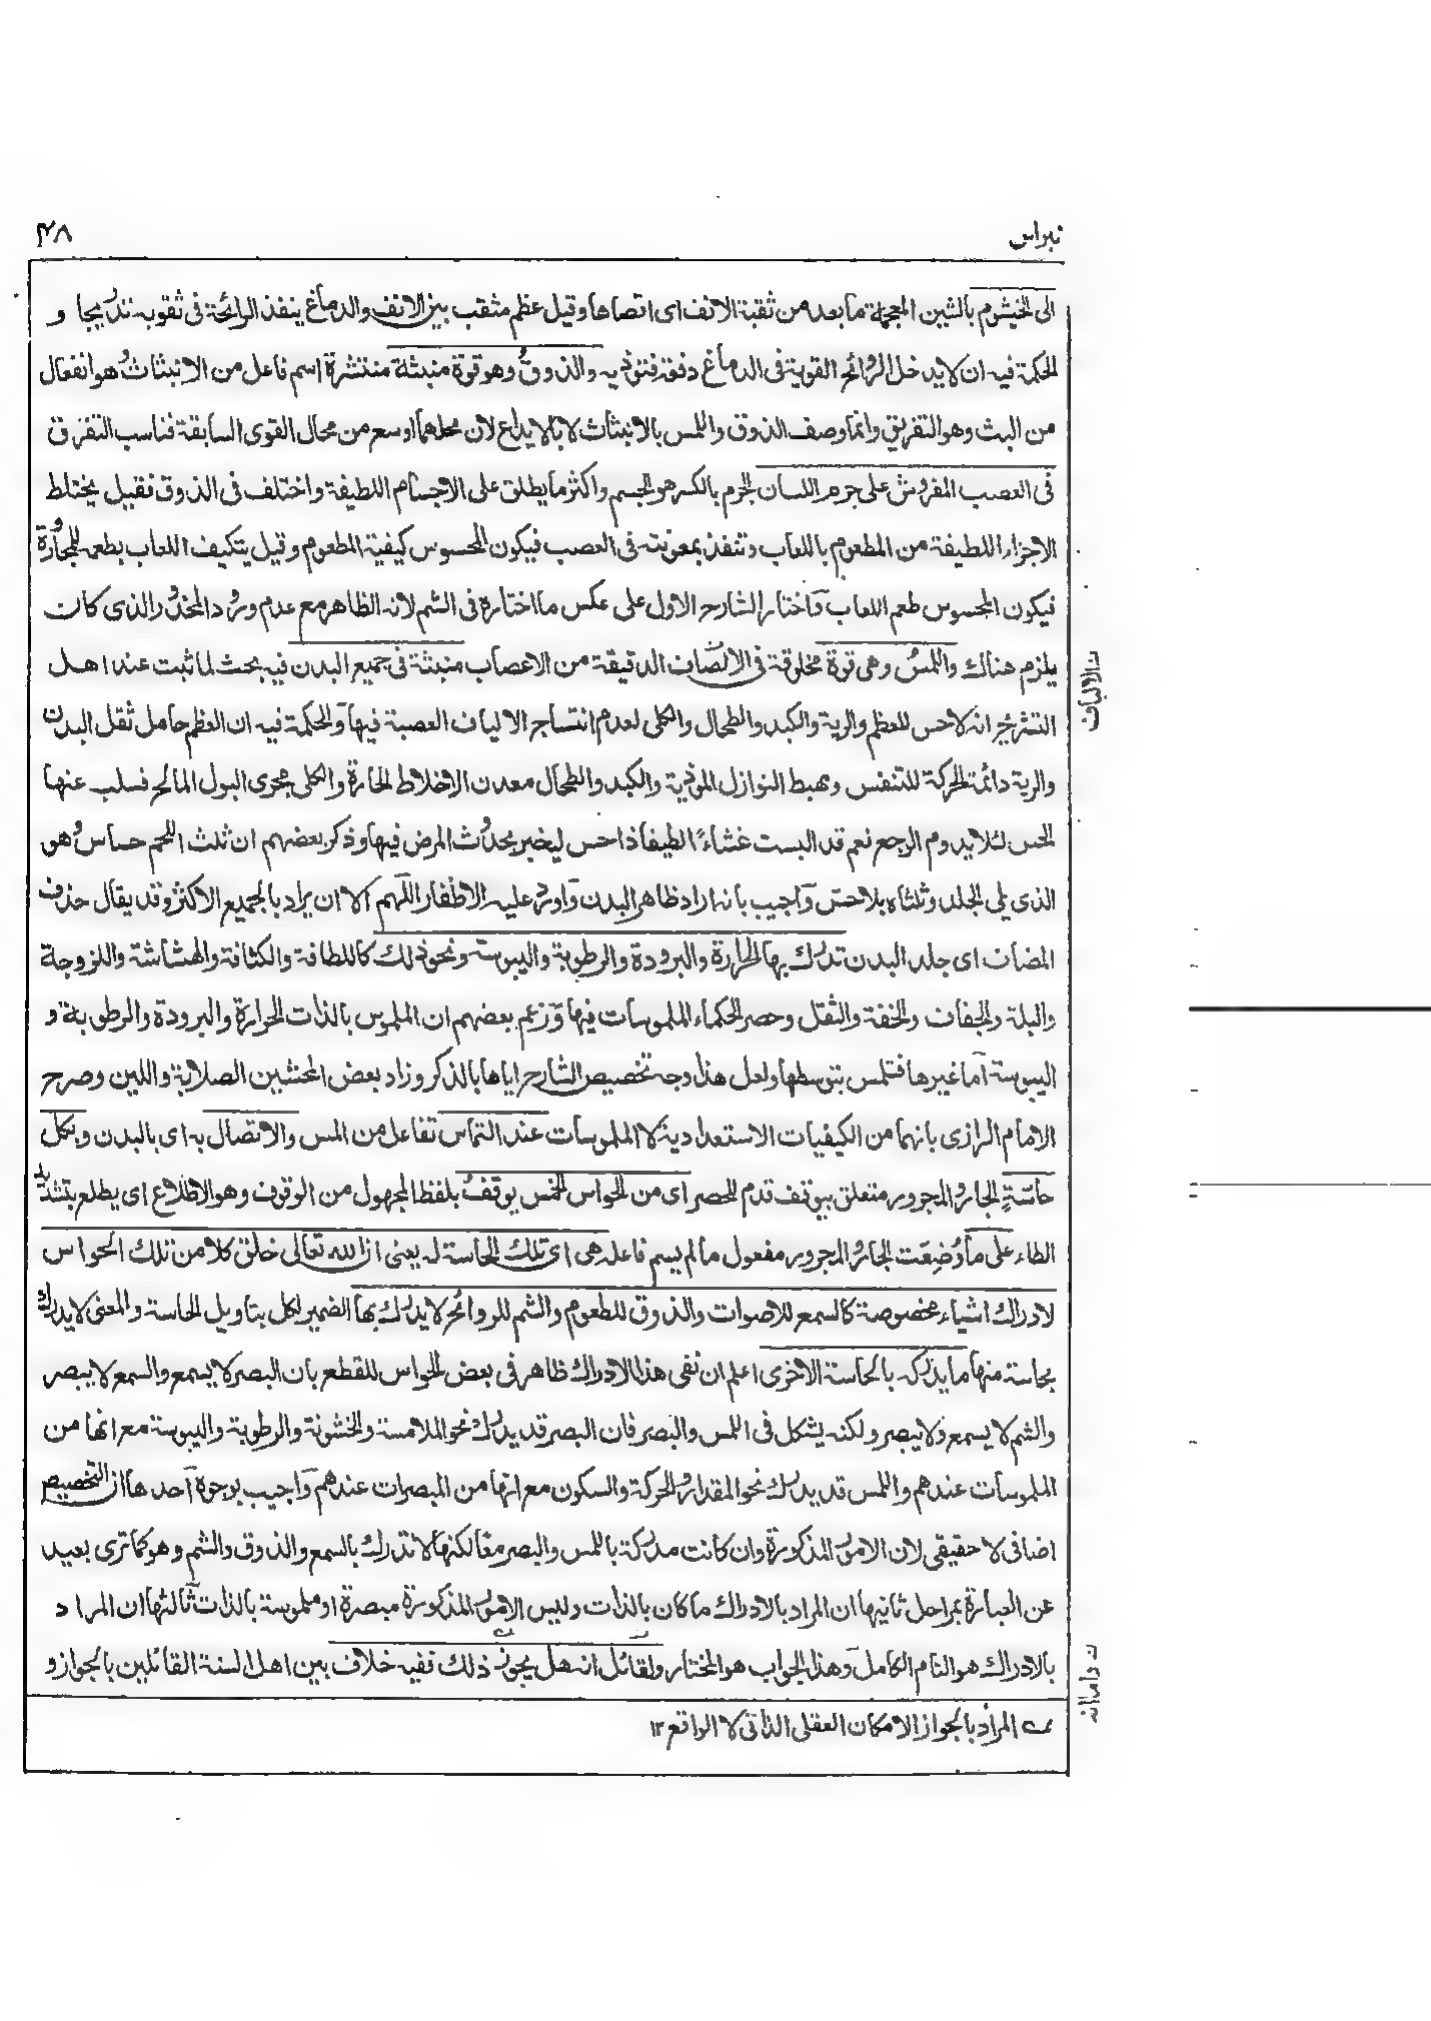 نبراس
۴۸
الى الخيشوم بالشين المعجمة ما بعد من ثقبة الانف اى اقصاها وقيل عظم مثقب بين الانف والدماغ ينفذ الرائحة فى ثقوبه تدريجا و
الحكمة فيه ان لا يدخل الروائح القوية فى الدماغ دفعة فتوذيه والذوق وهو قوة منبثة منتشرة اسم فاعل من الانبثاث هو انفعال
من البث وهو التفريق وانما وصف الذوق واللمس بالانبثاث لا بالايداع لان محلهما اوسع من محال القوى السابقة فناسب التفرق
فى العصب المفروش على جرم اللسان الجرم بالكسر هو الجسم واكثر ما يطلق على الاجسام اللطيفة واختلف فى الذوق فقيل يختلط
الاجزاء اللطيفة من المطعوم باللعاب وتنفذ بمعونته فى العصب فيكون المحسوس كيفية المطعوم وقيل يتكيف اللعاب بطعمه للمجاورة
فيكون المحسوس طعم اللعاب واختار الشارح الاول على عكس ما اختاره فى الشم لانه الظاهر مع عدم ورود المخدور الذى كان
يلزم هناك واللمس وهى قوة مخلوقة فى الالصاف الدقيقة من الاعصاب منبثة فى جميع البدن فيه بحث لما ثبت عند اهل
التشريح انه لا حس للعظم والرية والكبد والطحال والكلى لعدم انتساج الالياف العصبة فيها والحكمة فيه ان العظم حامل ثقل البدن
والرية دائمة الحركة للتنفس ومهبط النوازل الموذية والكبد والطحال معدن الاخلاط الحارة والكلى مجرى البول المالح فسلب عنها
الحس لئلا يدوم الوجع نعم قد البست غشاءً لطيفا ذا حس ليخبر بحدوث المرض فيها وذكر بعضهم ان ثلث اللحم حساس وهو
الذى يلى الجلد وثلثاه بلا حس واجيب بانه اراد ظاهر البدن واورد عليه الاظفار اللهم الا ان يراد بالجميع الاكثر وقد يقال حذف
المضاف اى جلد البدن تدرك بها الحرارة والبرودة والرطوبة واليبوسة ونحو ذلك كاللطافة والكثافة والهشاشة واللزوجة
والبلة والجفاف والخفة والثقل وحصر الحكماء الملموسات فيها وزعم بعضهم ان الملموس بالذات الحرارة والبرودة والرطوبة و
اليبوسة اما غيرها فتلمس بتوسطها ولعل هذا وجه تخصيص الشارح اياها بالذكر وزاد بعض المحشين الصلابة واللين وصرح
الامام الرازى بانهما من الكيفيات الاستعدادية لا الملموسات عند التماس تفاعل من المس والاتصال به اى بالبدن وبكل
حاسّةٍ الجار والمجرور متعلق بيوقف قدم للحصر اى من الحواس الخمس يوقف بلفظ المجهول من الوقوف وهو الاطلاع اى يطلع بتشديد
الطاء على ما وُضِعَت الجار والمجرور مفعول ما لم يسم فاعله هى اى تلك الحاسة له يعنى ان الله تعالى خلق كلا من تلك الحواس
لادراك اشياء مخصوصة كالسمع للاصوات والذوق للطعوم والشم للروائح لا يدرك بها الضمير لكل بتاويل الحاسة والمعنى لا يدرك
بحاسة منها ما يدركه بالحاسة الاخرى اعلم ان نفى هذا الادراك ظاهر فى بعض الحواس للقطع بان البصر لا يسمع والسمع لا يبصر
والشم لا يسمع ولا يبصر ولكنه يشكل فى اللمس والبصر فان البصر قد يدرك نحو الملامسة والخشونة والرطوبة واليبوسة مع انها من
الملموسات عندهم واللمس قد يدرك نحو المقدار والحركة والسكون مع انها من المبصرات عندهم واجيب بوجوه احدها ان التخصيص
اضافى لا حقيقى لان الامور المذكورة وان كانت مدركة باللمس والبصر معا لكنها لا تدرك بالسمع والذوق والشم وهو كما ترى بعيد
عن العبارة بمراحل ثانيها ان المراد بالادراك ما كان بالذات وليس الامور المذكورة مبصرة او ملموسة بالذات ثالثها ان المراد
بالادراك هو التام الكامل وهذا الجواب هو المختار ولقائل انه هل يجوز ذلك ففيه خلاف بين اهل السنة القائلين بالجواز و
المراد بالجواز الامكان العقلى الذاتى لا الواقع ۱۲
ن الالياف
ن واما انه